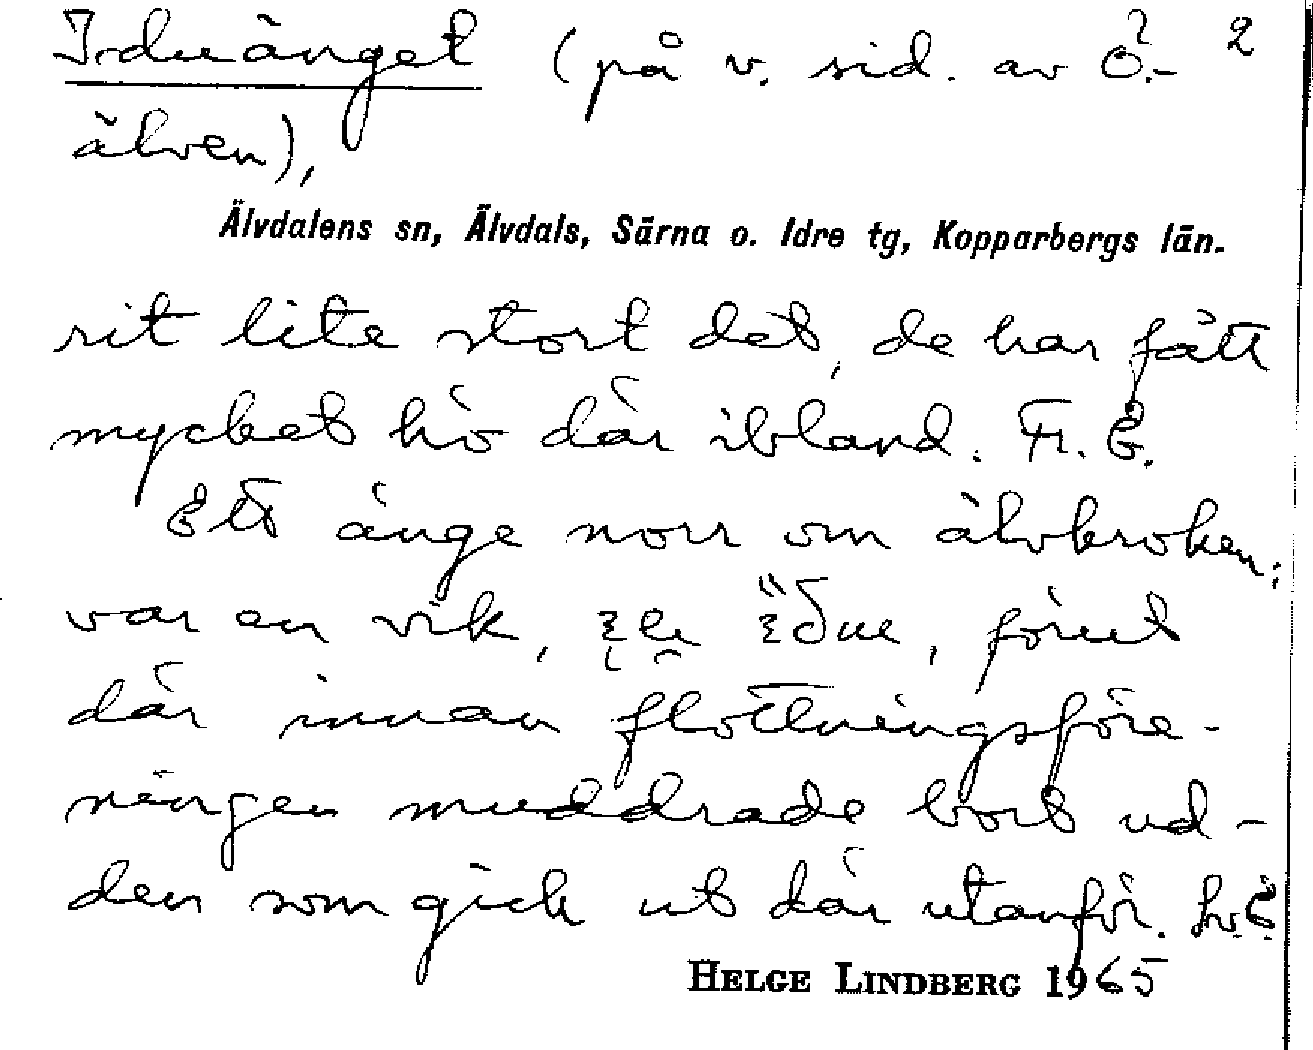 Idnänget (på v. sid. av Ö.- 2
älven),
Älvdalens sn, Älvdals, Särna o. Idre tg, Kopparbergs län.
rit lite stort det, de har fått
mycket hö där ibland. Fr. E.
Ett änge norr om älvkroken;
var en vik, förut
där innan flottningsföre-
ningen muddrade bort ud-
den som gick ut där utanför.
HELGE LINDBERG 1965